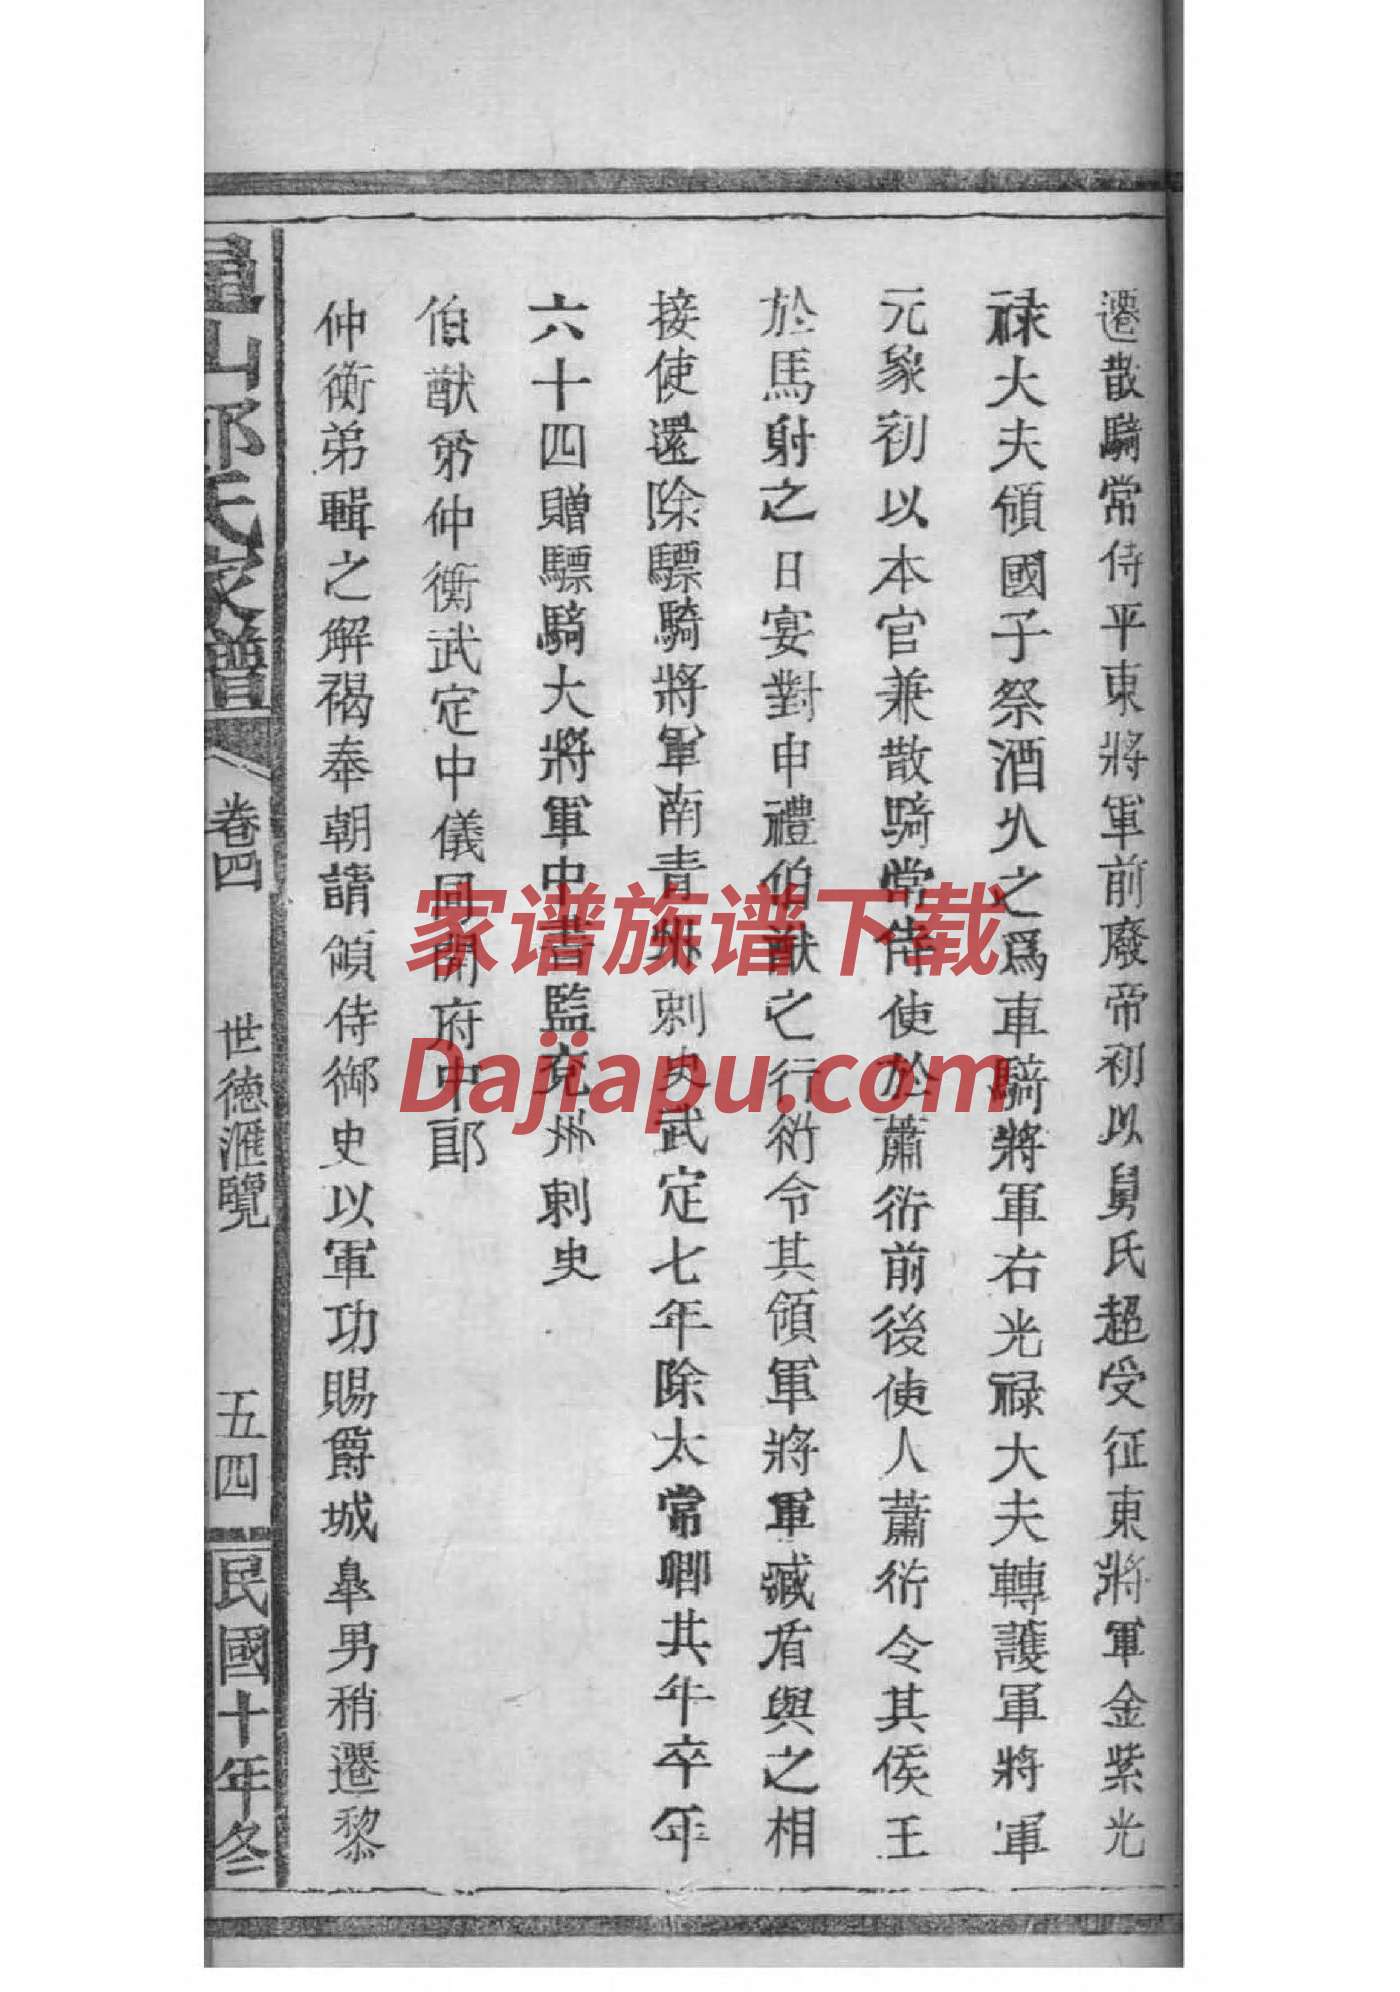 遷散騎常侍平東將軍前廢帝初以舅氏超受征東將軍金紫光
祿大夫領國子祭酒乆之爲車騎將軍右光祿大夫轉護軍將軍
元象初以本官兼散騎常侍使於蕭衍前後使人蕭衍令其侯王
於馬射之日宴對申禮伯猷之行衍令其領軍將軍臧盾與之相
接使還除驃騎將軍南青州刺史武定七年除太常卿其年卒年
六十四贈驃騎大將軍中書監兗州刺史
伯猷弟仲衡武定中儀同開府中郎
仲衡弟輯之解褐奉朝請領侍御史以軍功賜爵城皐男稍遷黎
山氏家譜
卷四
世德滙覽
五四
民國十年冬
家谱族谱下载
Dajiapu.com